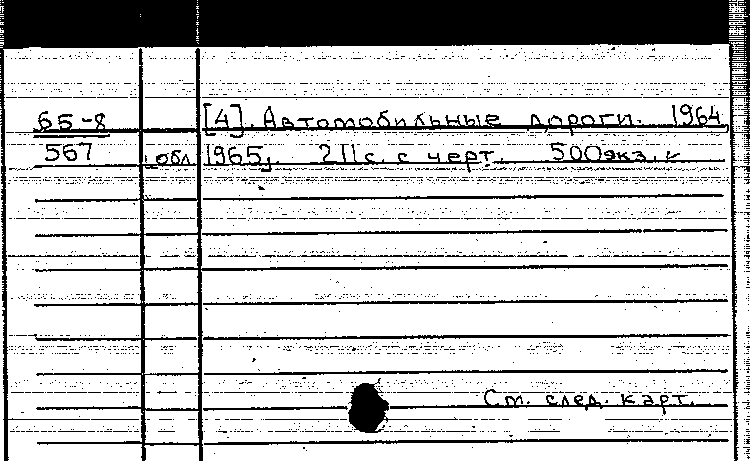 65-8 [4]. Автомобильные дороги. 1964,
567 обл 1965, 211с. с черт. 500экз.
См. след. карт.